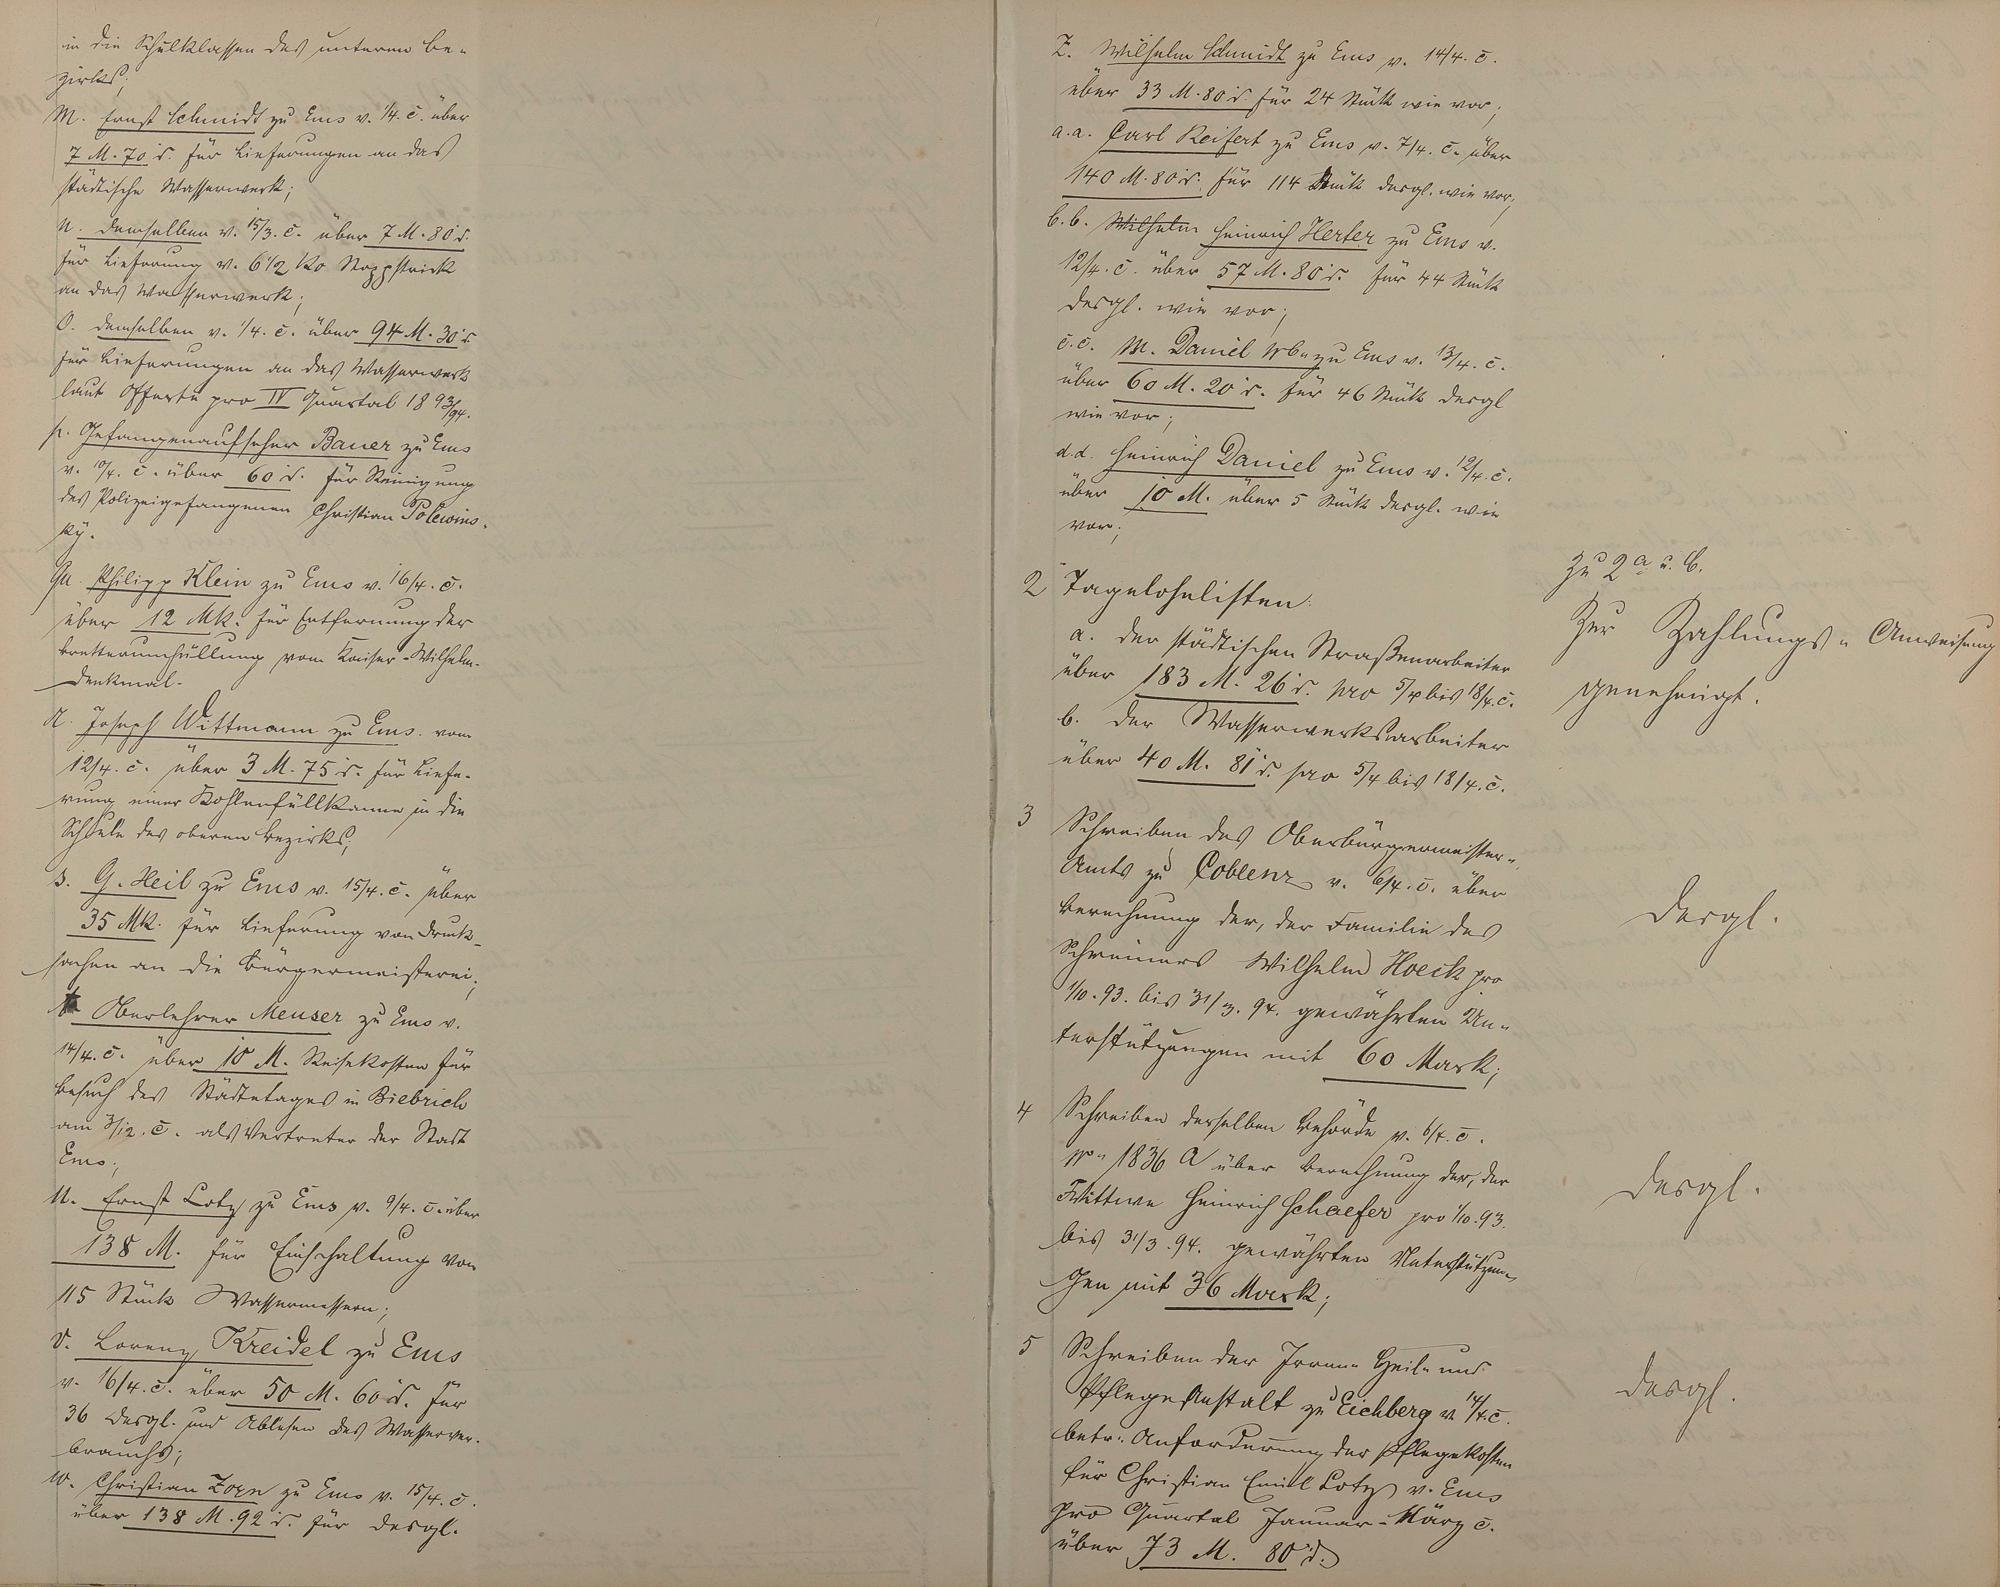 in die Schulklassen des unteren Be-
zirks;
M. Ernst Schmidt zu Ems v. 1/4. c. über
7 M. 70 d. für Lieferungen an das
städtische Wasserwerk;
N. demselben v. 15/3. c. über 7 M. 80 d.
für Lieferung v. 6 1/2 Ko Stoppstrick
an das Wasserwerk;
O. demselben v. 1/4. c. über 94 M. 30 d
für Lieferungen an das Wasserwerk
laut Offerte pro IV Quartal 1893/94.
p. Gefangenaufseher Bauer zu Ems
v. 10/4. c. über 60 d. für Reinigung
des Polizeigefangenen Christian Polewins-
ky.
Qu. Philipp Klein zu Ems v. 16/4. c.
über 12 Mk. für Entfernung der
Bretterumhüllung vom Kaiser-Wilhelm-
Denkmal.
R. Joseph Wittmann zu Ems. vom
12/4. c. über 3 M. 75 d. für Liefe-
rung einer Kohlenfüllkanne in die
Schule des oberen Bezirks;
s. G. Heil zu Ems v. 15/4. c. über
35 Mk. für Lieferung von Druck-
sachen an die Bürgermeisterei;
t. Oberlehrer Meuser zu Ems v.
14/4. c. über 10 M. Reisekosten für
Besuch des Städtetages in Biebrich
am 3/12. c. als Vertreter der Stadt
Ems;
U. Ernst Lotz zu Ems v. 9/4. c. über
138 M. für Einschaltung von
115 Stück Wassermessern;
V. Lorenz Kreidel zu Ems
v. 16/4. c. über 50 M. 60 d. für
36 desgl. und Ablesen des Wasserver-
brauchs;
W. Christian Zorn zu Ems v. 15/4. c.
über 138 M. 92 d. für desgl.
Z. Wilhelm Schmidt zu Ems v. 14/4. c.
über 33 M. 80 d. für 24 Stück wie vor;
a.a. Carl Reifert zu Ems v. 7/4. c. über
140 M. 80 d. für 114 Stück desgl. wie vor;
b.b. Wilhelm Heinrich Herter zu Ems v.
12/4. c. über 57 M. 80 d. für 44 Stück
desgl. wie vor;
c.c. M. Daniel Wbe zu Ems v. 13/4. c.
über 60 M. 20 d. für 46 Stück desgl
wie vor;
d.d. Heinrich Daniel zu Ems v. 12/4. c.
über 10 M. über 5 Stück desgl. wie
vor;
2 Tagelohnlisten:
a. der städtischen Straßenarbeiter
über 183 M. 26 d. pro 5/4 bis 18/4. c.
b. der Wasserwerksarbeiter
über 40 M. 81 d. pro 5/4 bis 18/4. c.
zu 2 a u. b.
Zur Zahlungs-Anweisung
genehmigt.
3 Schreiben des Oberbürgermeister-
Amts zu Coblenz v. 6/4. c. über
Berechnung der, der Familie des
Schreiners Wilhelm Hoeck pro
1/10. 93. bis 31/3. 94. gewährten Un-
terstützungen mit 60 Mark;
desgl.
4 Schreiben derselben Behörde v. 6/4. c.
No 1836 A über Berechnung der, der
Wittwe Heinrich Schaefer pro 1/10. 93.
bis 31/3. 94. gewährten Unterstützun-
gen mit 36 Mark;
desgl.
5 Schreiben der Irren- Heil- und
Pflege Anstalt zu Eichberg v. 14/4. c.
betr: Anforderung der Pflegekosten
für Christian Emil Lotz v. Ems
pro Quartal Januar-März c.
über 73 M. 80 d.
desgl.